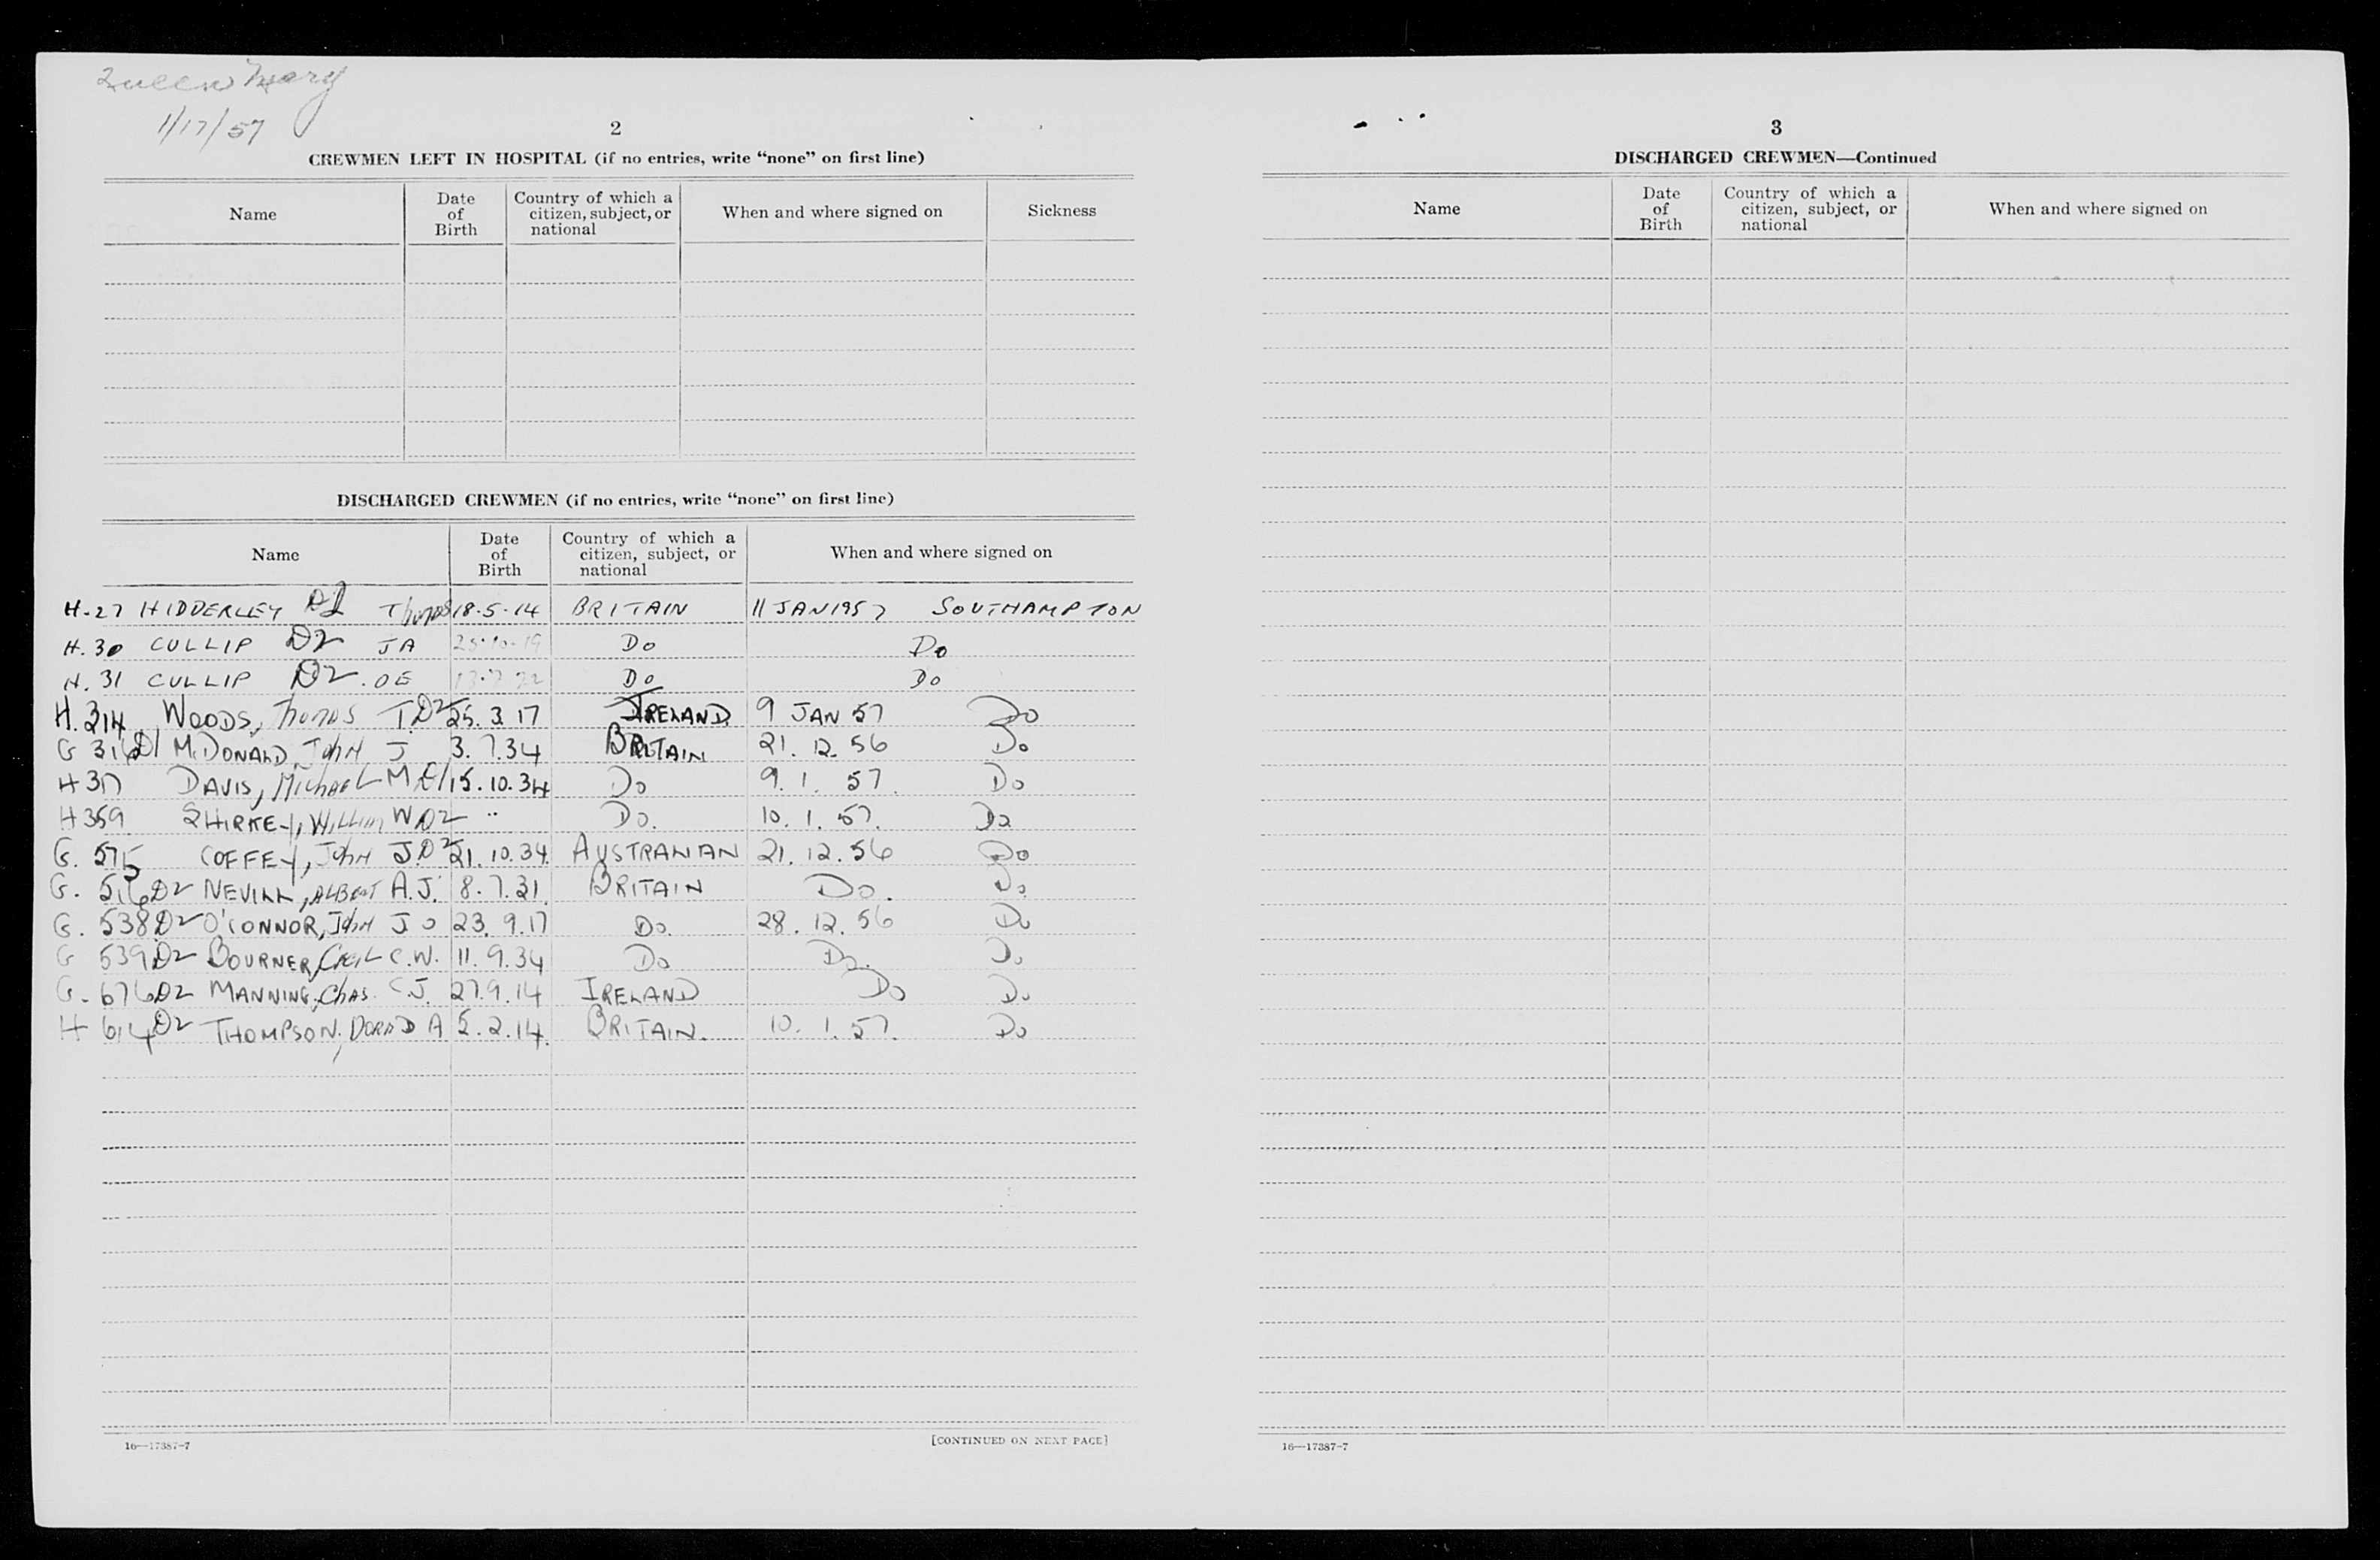 Queen Mary
1/17/57
2
CREWMEN LEFT IN HOSPITAL (if no entries, write “none” on first line)
Name Date of Birth Country of which a citizen, subject, or national When and where signed on Sickness
DISCHARGED CREWMEN (if no entries, write “none” on first line)
Name Date of Birth Country of which a citizen, subject, or national When and where signed on
H-27 HIDDERLEY Thomas 18-5-14 BRITAIN 11 JAN 1957 SOUTHAMPTON
H. 30 CULLIP D2 JA 25-10-19 Do Do
H. 31 CULLIP D2 OE Do Do
H. 314 WOODS, Thomas T. D2 25. 3. 17 IRELAND 9 JAN 57 Do
G 316 D1 McDONALD, John J 3. 7. 34 BRITAIN 21. 12. 56 Do
H 317 DAVIS, Michael M 15. 10. 34 Do 9. 1. 57. Do
H 359 SHIRKEY, William W D2 " Do. 10. 1. 57. Do
G. 515 COFFEY, John J. D2 21. 10. 34. AUSTRALIAN 21. 12. 56 Do
G. 516 D2 NEVILL, ALBERT A.J. 8. 7. 31. BRITAIN Do. Do
G. 538 D2 O'CONNOR, John J O 23. 9. 17 Do. 28. 12. 56 Do
G 539 D2 BOURNER, CECIL C.W. 11. 9. 34 Do Do. Do
G. 676 D2 MANNING, Chas. C.J. 27. 9. 14 IRELAND Do Do
H 614 D2 THOMPSON, A 5. 2. 14. BRITAIN. 10. 1. 57. Do
16—17387-7 [CONTINUED ON NEXT PAGE]
3
DISCHARGED CREWMEN—Continued
Name Date of Birth Country of which a citizen, subject, or national When and where signed on
16—17387-7